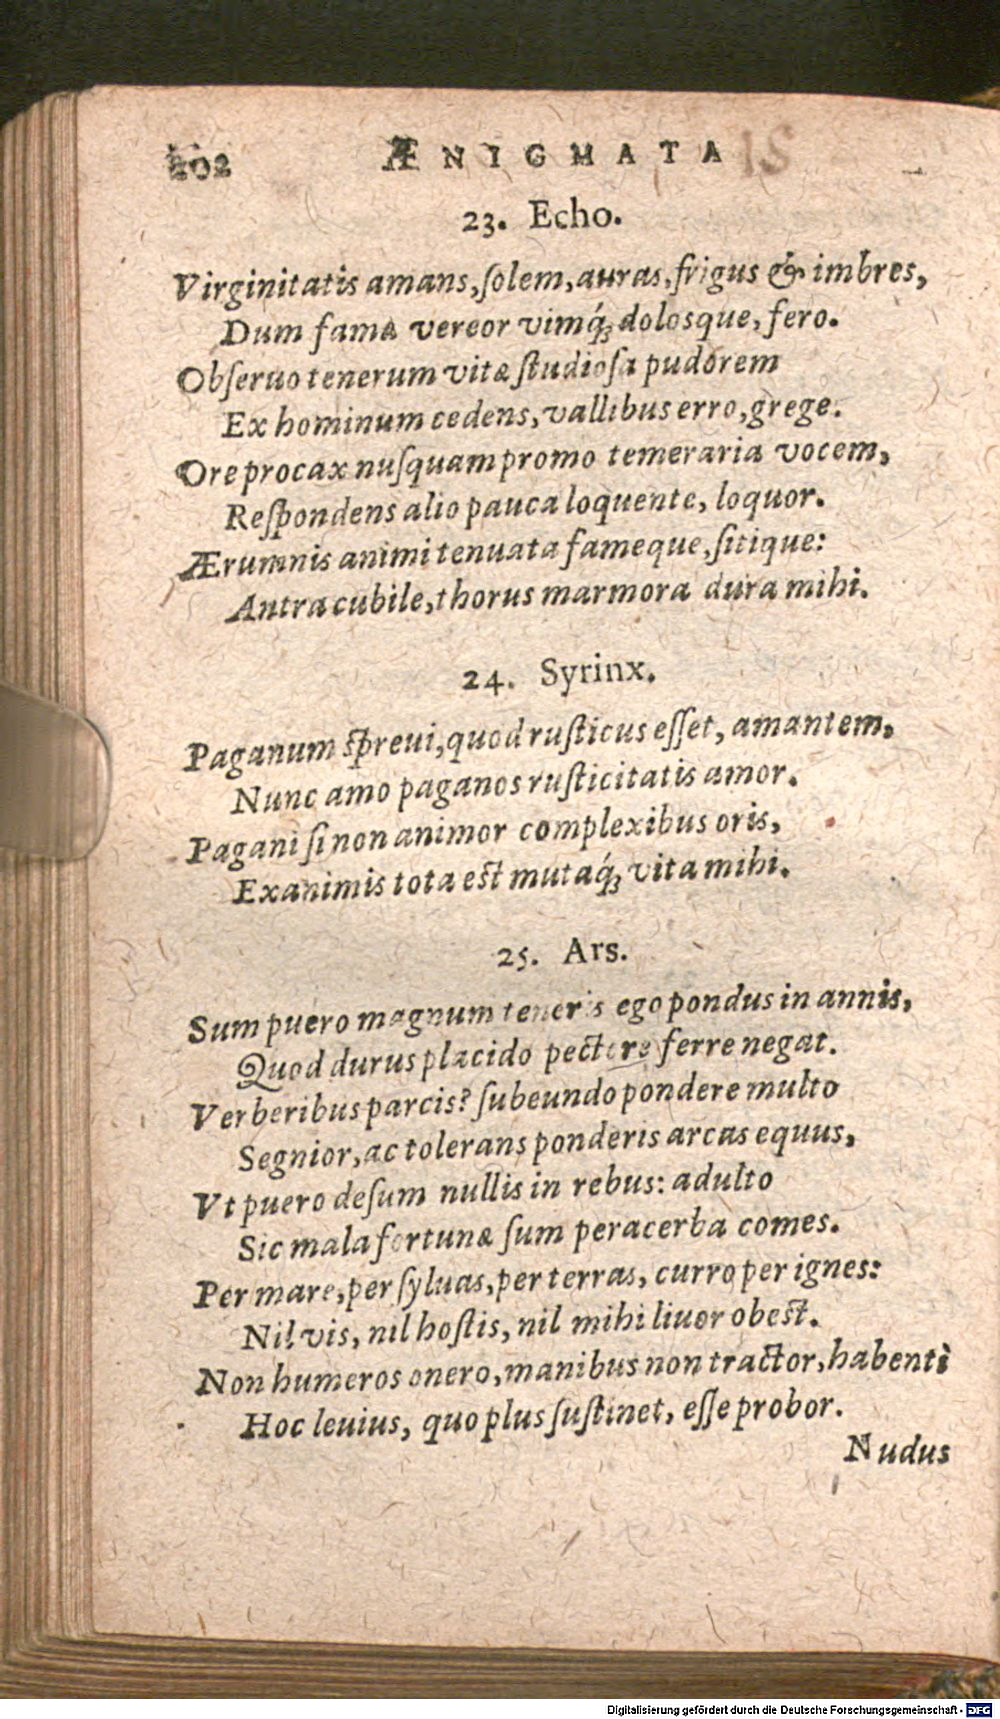 202 ÆNIGMATA
23. Echo.
Virginitatis amans, ſolem, auras, frigus & imbres,
Dum fama vereor vimq́; dolosque, fero.
Obſeruo tenerum vitæ ſtudioſa pudorem
Ex hominum cedens, vallibus erro, grege.
Ore procax nuſquam promo temeraria vocem,
Reſpondens alio pauca loquente, loquor.
Ærumnis animi tenuata fameque, ſitique:
Antra cubile, thorus marmora dura mihi.
24. Syrinx.
Paganum ſpreui, quod ruſticus eſſet, amantem,
Nunc amo paganos ruſticitatis amor.
Pagani ſi non animor complexibus oris,
Exanimis tota eſt mutaq́; vita mihi.
25. Ars.
Sum puero magnum teneris ego pondus in annis,
Quod durus placido pectore ferre negat.
Verberibus parcis? ſubeundo pondere multo
Segnior, ac tolerans ponderis arcas equus,
Vt puero deſum nullis in rebus: adulto
Sic mala fortunæ ſum peracerba comes.
Per mare, per ſyluas, per terras, curro per ignes:
Nil vis, nil hoſtis, nil mihi liuor obeſt.
Non humeros onero, manibus non tractor, habenti
Hoc leuius, quo plus ſuſtinet, eſſe probor.
Nudus
Digitalisierung gefördert durch die Deutsche Forschungsgemeinschaft - DFG